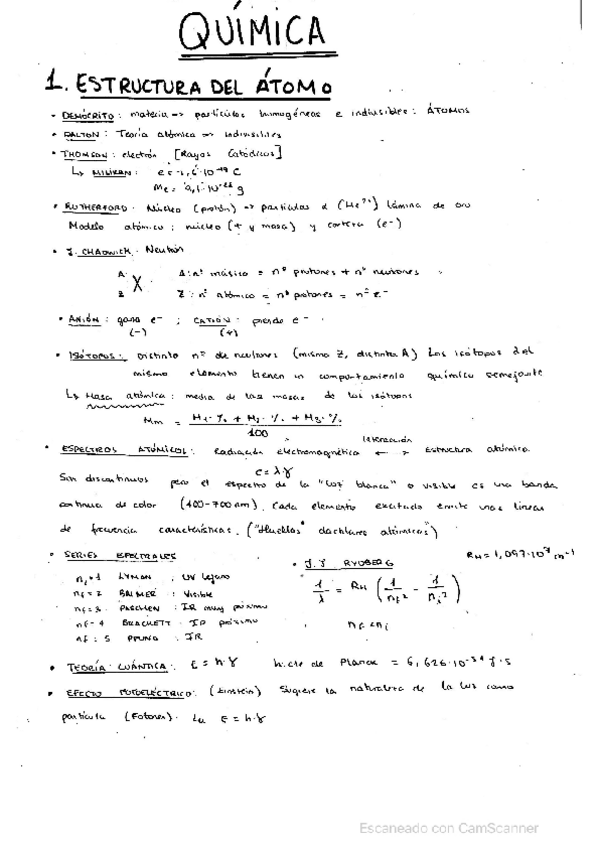 QUÍMICA
1. ESTRUCTURA DEL ÁTOMO
• DEMÓCRITO: materia => partículas homogéneas e indivisibles: ÁTOMOS
• DALTON: Teoría atómica => indivisibles
• THOMSON: electrón [Rayos Catódicos]
↳ MILIKAN: e = -1,6·10⁻¹⁹ C
Me = 9,1·10⁻²⁸ g
• RUTHERFORD: Núcleo (protón) => partículas α (He²⁺) lámina de oro
Modelo atómico: núcleo (+ y masa) y corteza (e⁻)
• J. CHADWICK: Neutrón
A X A: nº másico = nº protones + nº neutrones
Z Z: nº atómico = nº protones = nº e⁻
• ANIÓN: gana e⁻ ; CATIÓN: pierde e⁻
(-) (+)
• ISÓTOPOS: Distinto nº de neutrones (mismo Z, distinta A) Los isótopos del
mismo elemento tienen un comportamiento químico semejante
↳ Masa atómica: media de las masas de los isótopos
Mm = M₁·% + M₂·% + M₃·%
100
• ESPECTROS ATÓMICOS: Radiación electromagnética <-> Estructura atómica
interacción
c = λ·γ
Son discontinuos pero el espectro de la "luz blanca" o visible es una banda
continua de color (400-700 nm). Cada elemento excitado emite unas líneas
de frecuencia características. ("Huellas" dactilares atómicas")
• SERIES ESPECTRALES
• J.J RYDBERG RH = 1,097·10⁷ m⁻¹
nf = 1 LYMAN : UV lejano
nf = 2 BALMER : Visible
nf = 3 PASCHEN : IR muy próximo
nf = 4 BRACKETT : IR próximo
nf = 5 PFUND : IR
1/λ = RH (1/nf² - 1/ni²)
nf < ni
• TEORÍA CUÁNTICA: E = h·γ h: cte de Planck = 6,626·10⁻³⁴ J·s
• EFECTO FOTOELÉCTRICO: (Einstein) Sugiere la naturaleza de la luz como
partícula (Fotones). La E = h·γ
Escaneado con CamScanner